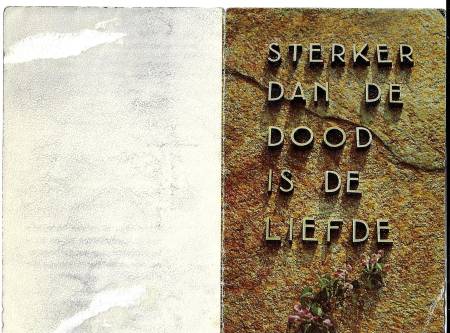 STERKER
DAN DE
DOOD
IS DE
LIEFDE